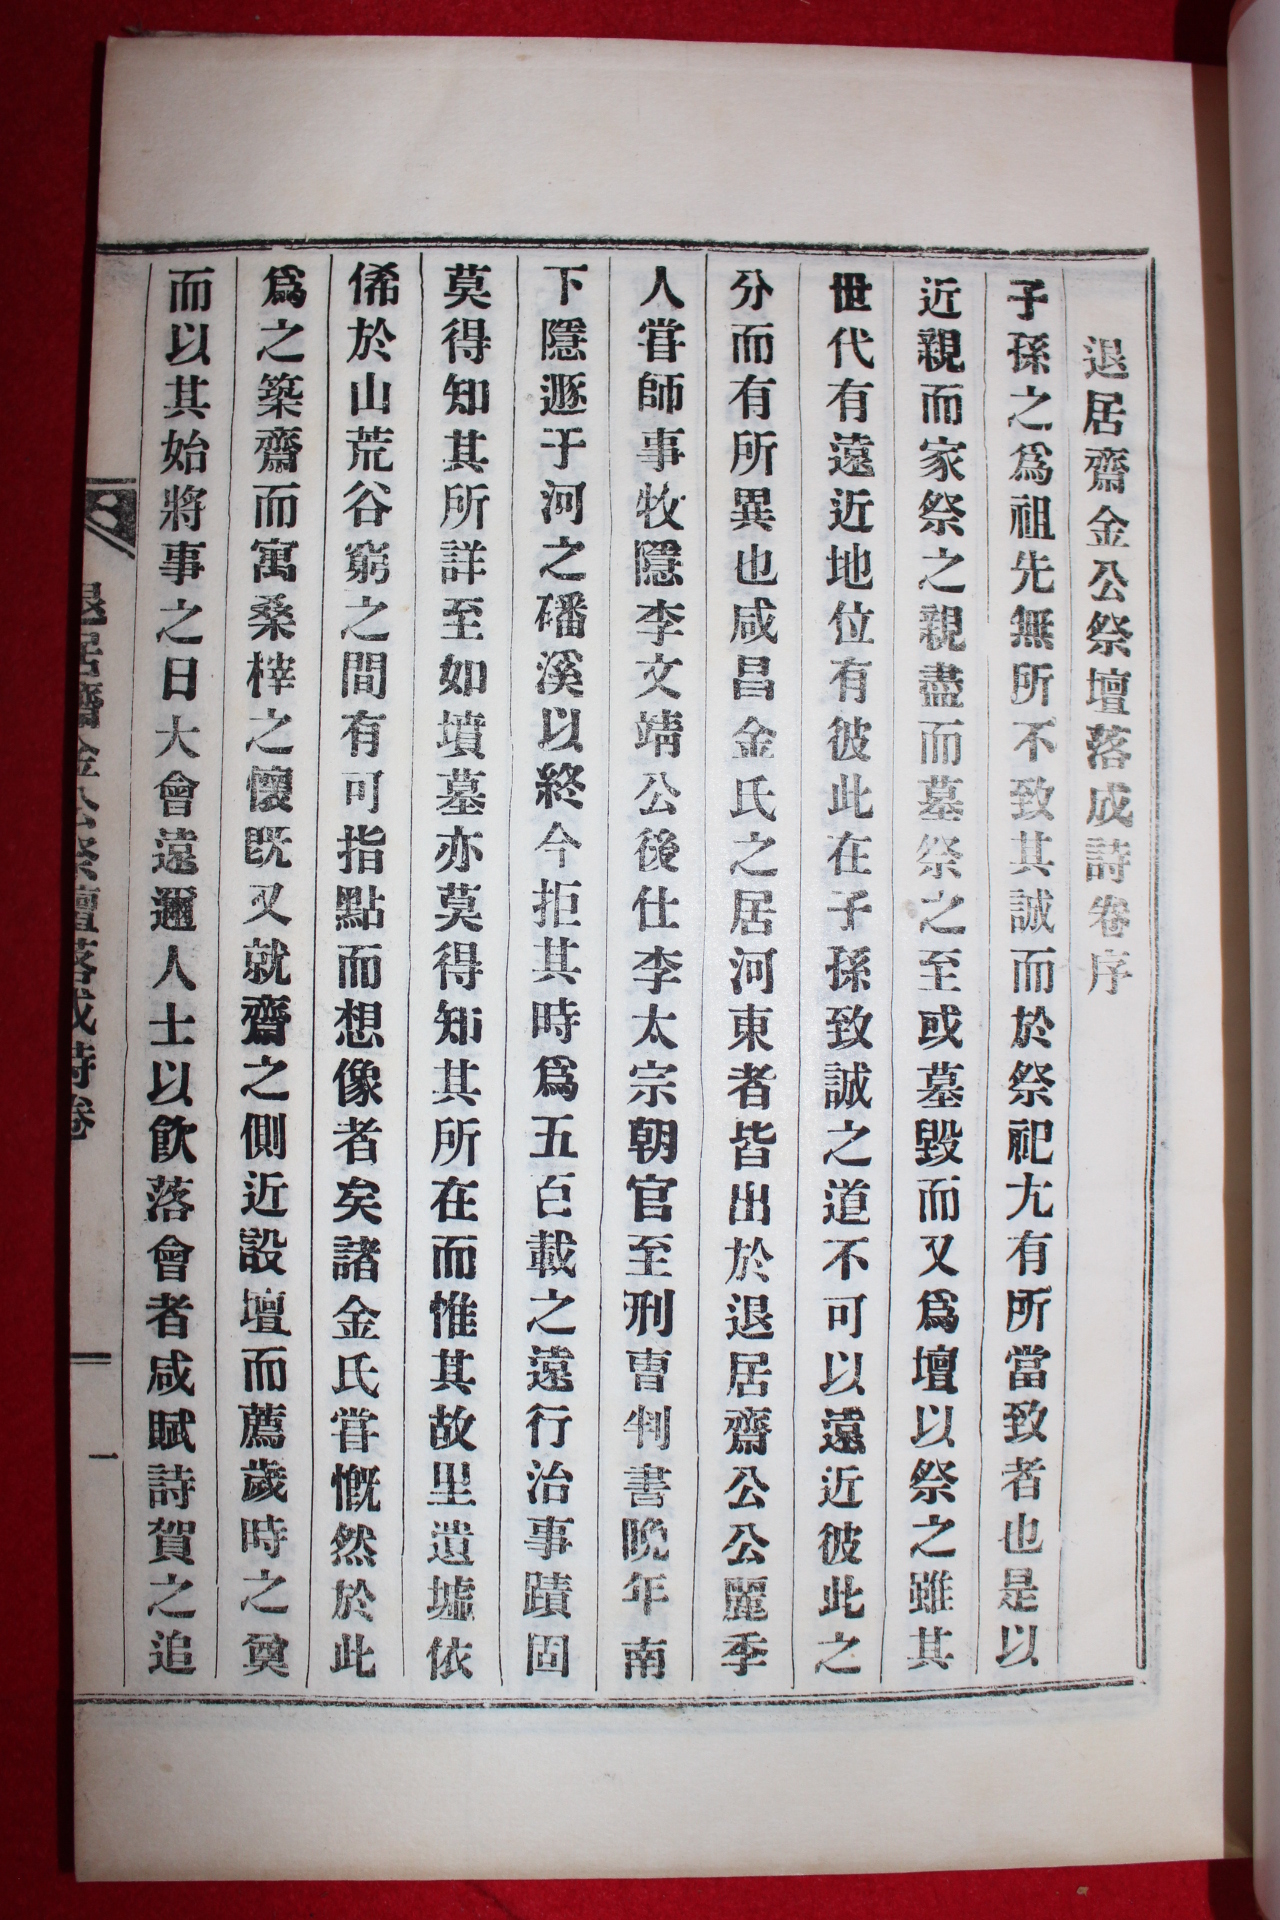 退居齋金公祭壇落成詩卷序
子孫之爲祖先無所不致其誠而於祭祀尢有所當致者也是以
近親而家祭之親盡而墓祭之至或墓毀而又爲壇以祭之雖其
世代有遠近地位有彼此在子孫致誠之道不可以遠近彼此之
分而有所異也咸昌金氏之居河東者皆出於退居齋公公麗季
人甞師事牧隱李文靖公後仕李太宗朝官至刑曹判書晩年南
下隱遯于河之磻溪以終今拒其時爲五百載之遠行治事蹟固
莫得知其所詳至如墳墓亦莫得知其所在而惟其故里遺墟依
俙於山荒谷窮之間有可指點而想像者矣諸金氏甞慨然於此
爲之築齋而寓桑梓之懷旣又就齋之側近設壇而薦歲時之奠
而以其始將事之日大會遠邇人士以飮落會者咸賦詩賀之追
退居齋金公祭壇落成詩卷
一